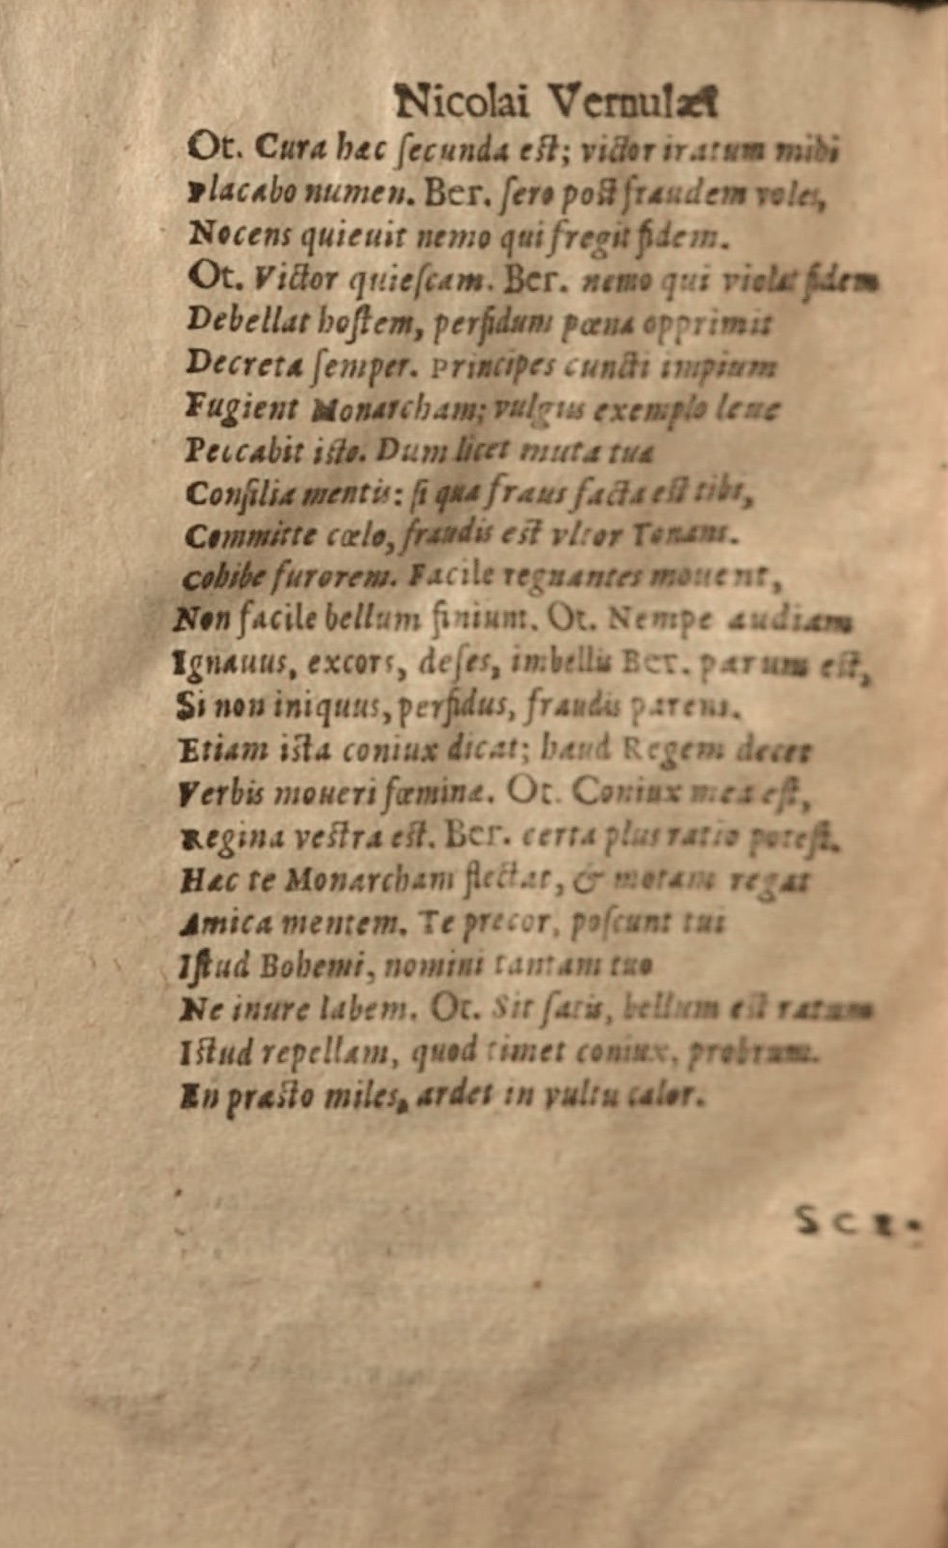 Nicolai Vernulæi
Ot. Cura hæc ſecunda eſt; victor iratum mihi
Placabo numen. Ber. ſero poſt fraudem voles,
Nocens quieuit nemo qui fregit fidem.
Ot. Victor quieſcam. Ber. nemo qui violat fidem
Debellat hoſtem, perfidum pœna opprimit
Decreta ſemper. Principes cuncti impium
Fugient Monarcham; vulgus exemplo leue
Peccabit iſto. Dum licet muta tua
Conſilia mentis: ſi qua fraus facta eſt tibi,
Committe cœlo, fraudis eſt vltor Tonans.
Cohibe furorem. Facile regnantes mouent,
Non facile bellum finiunt. Ot. Nempe audiam
Ignauus, excors, deſes, imbellis Ber. parum eſt,
Si non iniquus, perfidus, fraudis parens.
Etiam iſta coniux dicat; haud Regem decet
Verbis moueri fœminæ. Ot. Coniux mea eſt,
Regina veſtra eſt. Ber. certa plus ratio poteſt.
Hæc te Monarcham flectat, & motam regat
Amica mentem. Te precor, poſcunt tui
Iſtud Bohemi, nomini tantam tuo
Ne inure labem. Ot. Sit ſatis, bellum eſt ratum
Iſtud repellam, quod timet coniux, probrum.
En præſto miles, ardet in vultu calor.
SCE-